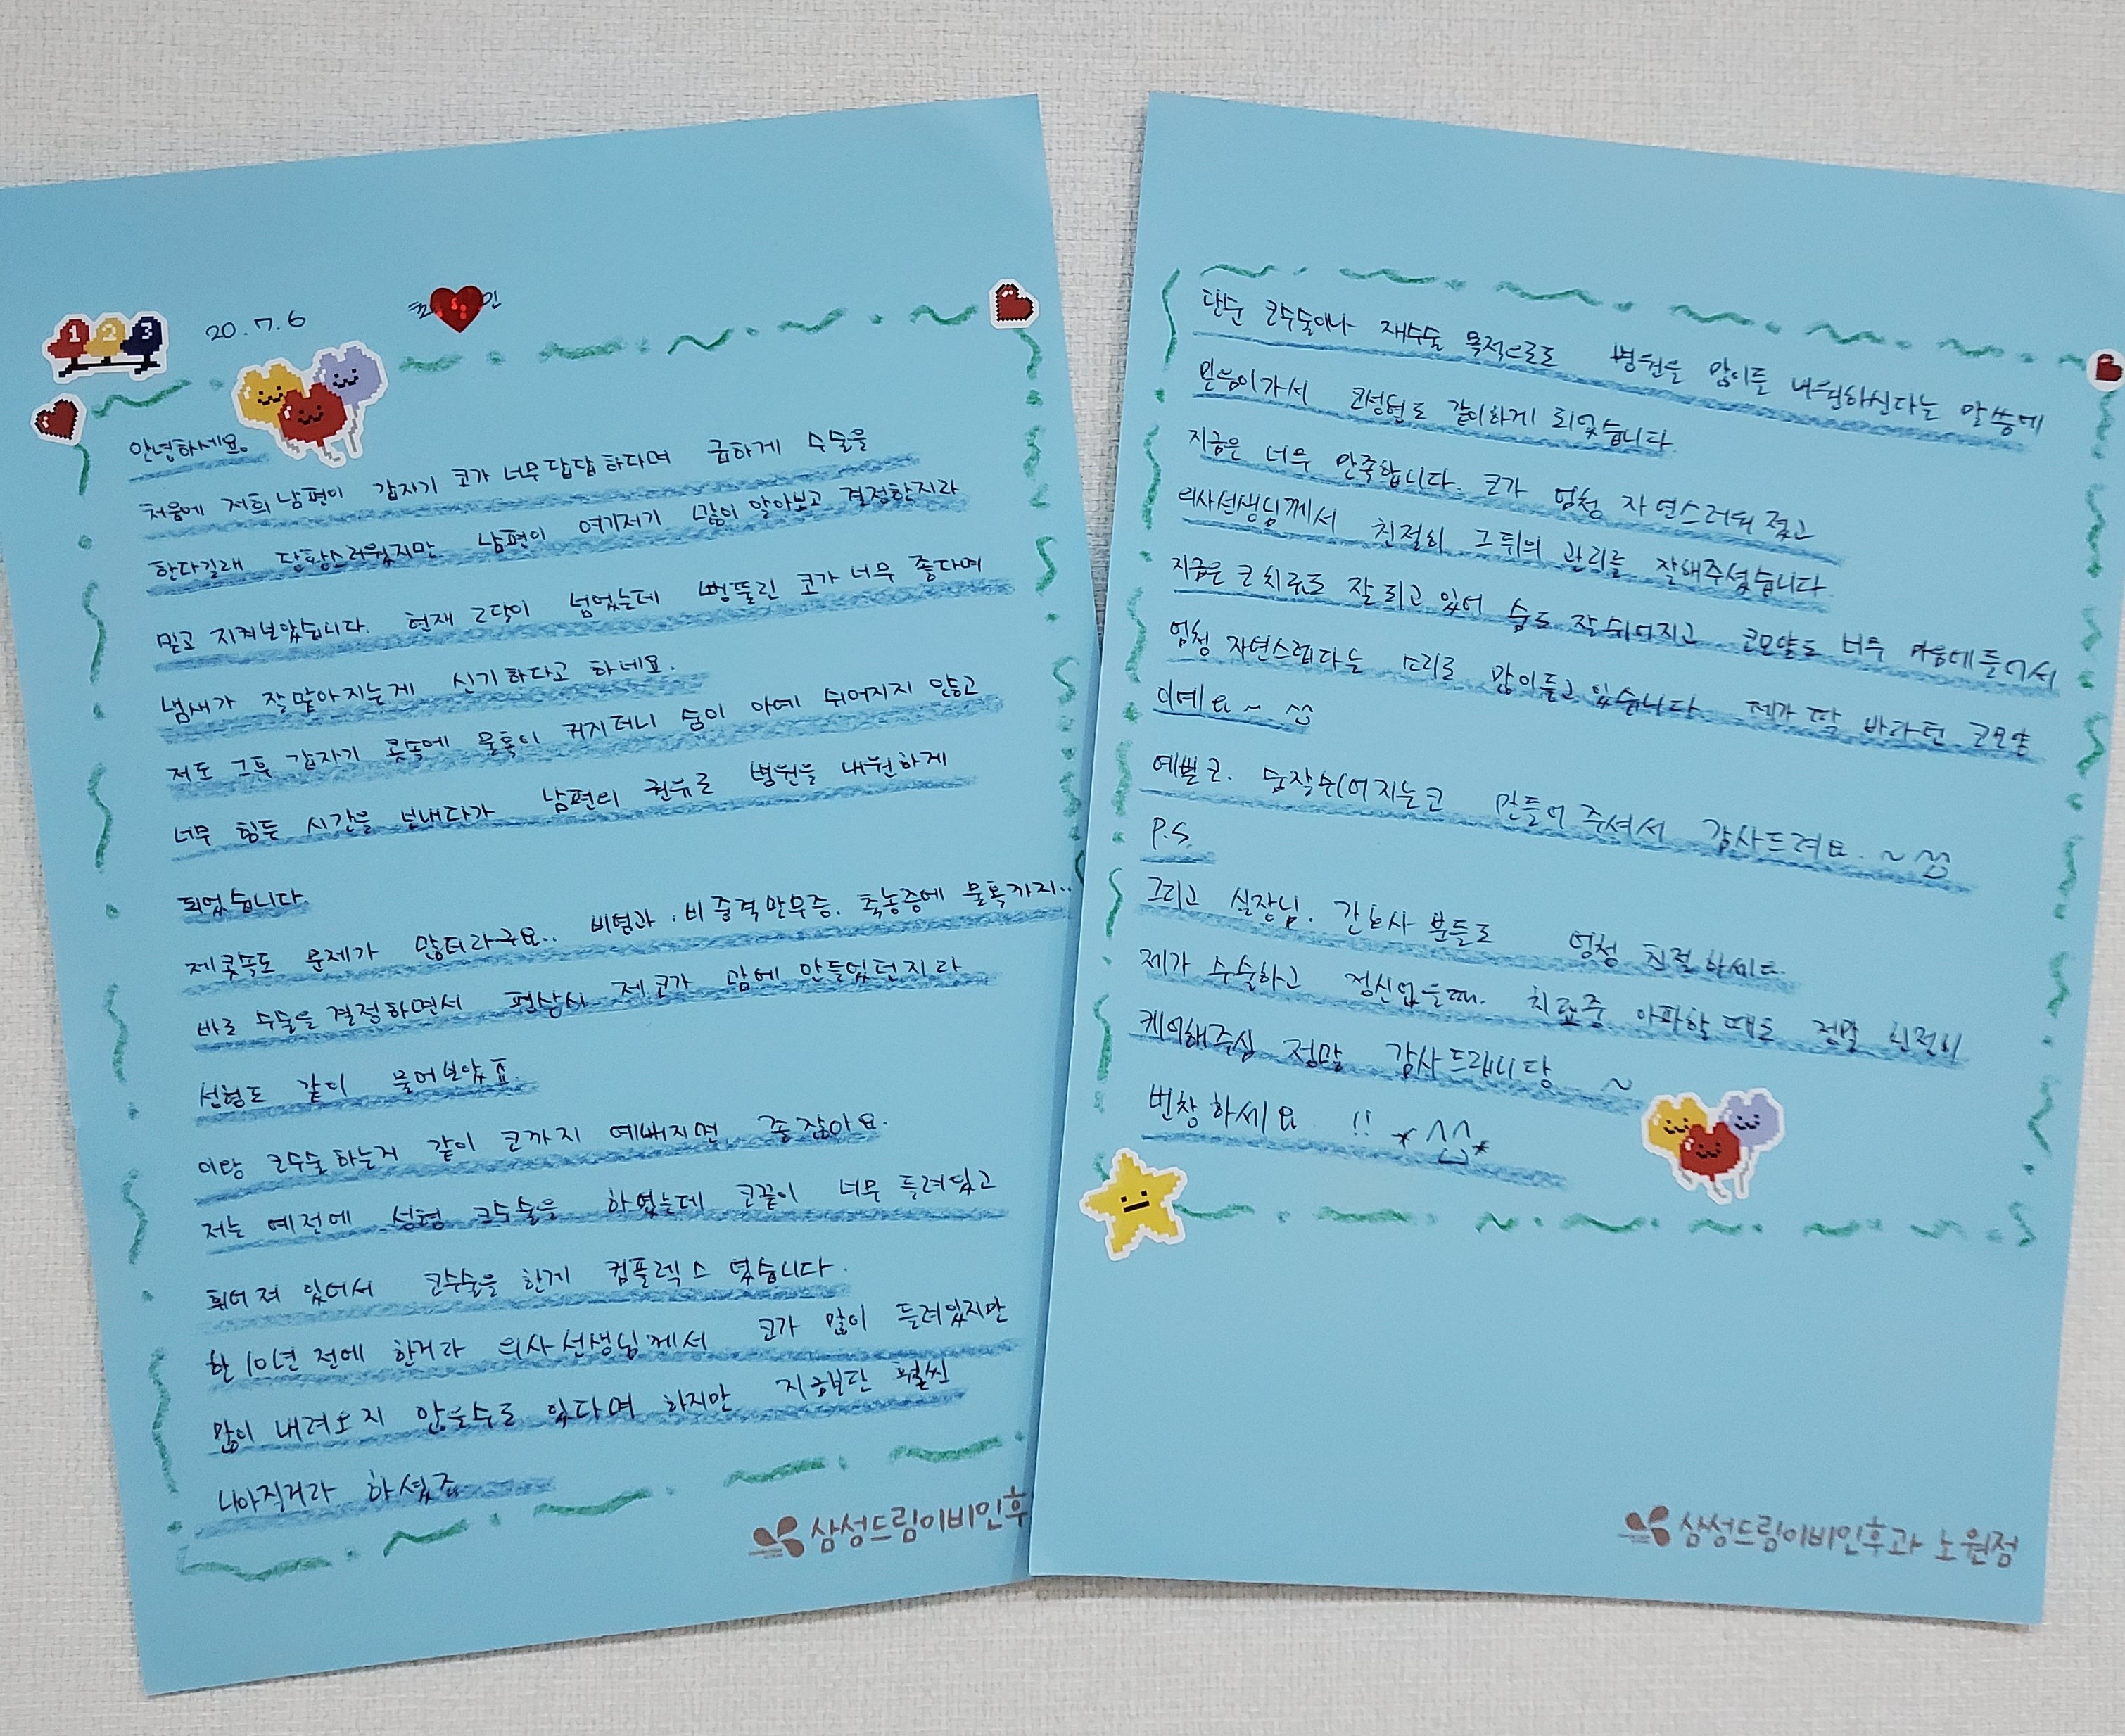 1 2 3
20.7.6
안녕하세요.
처음에 저희 남편이 갑자기 코가 너무 답답하다며 급하게 수술을
한다길래 당황스러웠지만 남편이 여기저기 많이 알아보고 결정한지라
믿고 지켜보았습니다. 현재 2달이 넘었는데 뻥뚤린 코가 너무 좋다며
냄새가 잘맡아지는게 신기하다고 하네요.
저도 그후 갑자기 콧속에 물혹이 커지더니 숨이 아예 쉬어지지 않고
너무 힘든 시간을 보내다가 남편의 권유로 병원을 내원하게
되었습니다.
제콧속도 문제가 많터라구요.. 비염과. 비중격만곡증. 축농증에 물혹까지..
바로 수술을 결정하면서 평상시 제코가 맘에 안들었던지라
성형도 같이 물어보았죠.
이왕 코수술하는거 같이 코까지 예뻐지면 좋잖아요.
저는 예전에 성형 코수술을 하였는데 코끝이 너무 들려있고
휘어져 있어서 코수술을 한게 컴플렉스 였습니다.
한 10년 전에 한거라 의사선생님께서 코가 많이 들려있지만
많이 내려오지 않을수도 있다며 하지만 지금보단 훨씬
나아질거라 하셨죠
삼성드림이비인후
단순 코수술이나 재수술 목적으로도 병원을 많이들 내원하신다는 말씀에
믿음이가서 코성형도 같이하게 되었습니다.
지금은 너무 만족합니다. 코가 엄청 자연스러워졌고
의사선생님께서 친절히 그뒤의 관리를 잘해주셨습니다.
지금은 코치료도 잘되고 있어 숨도 잘쉬어지고 코모양도 너무 마음에들어서
엄청 자연스럽다는 소리를 많이듣고 있습니다. 제가 딱 바라던 코모양
이데요~ ^^
예쁜코. 숨잘쉬어지는코 만들어주셔서 감사드려요.~ ^^
P.S.
그리고 실장님. 간호사 분들도 엄청 친절하세요.
제가 수술하고 정신없을때. 치료중 아파할때도 정말 친절히
케어해주심 정말 감사드립니당 ~
번창하세요 !! *^^*
삼성드림이비인후과 노원점